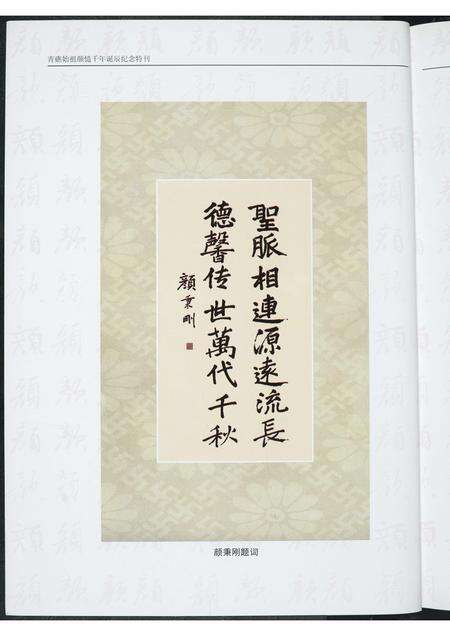 青礁始祖颜慥千年诞辰纪念特刊
聖脈相連源遠流長
德馨传世萬代千秋
顏秉剛
颜秉刚题词